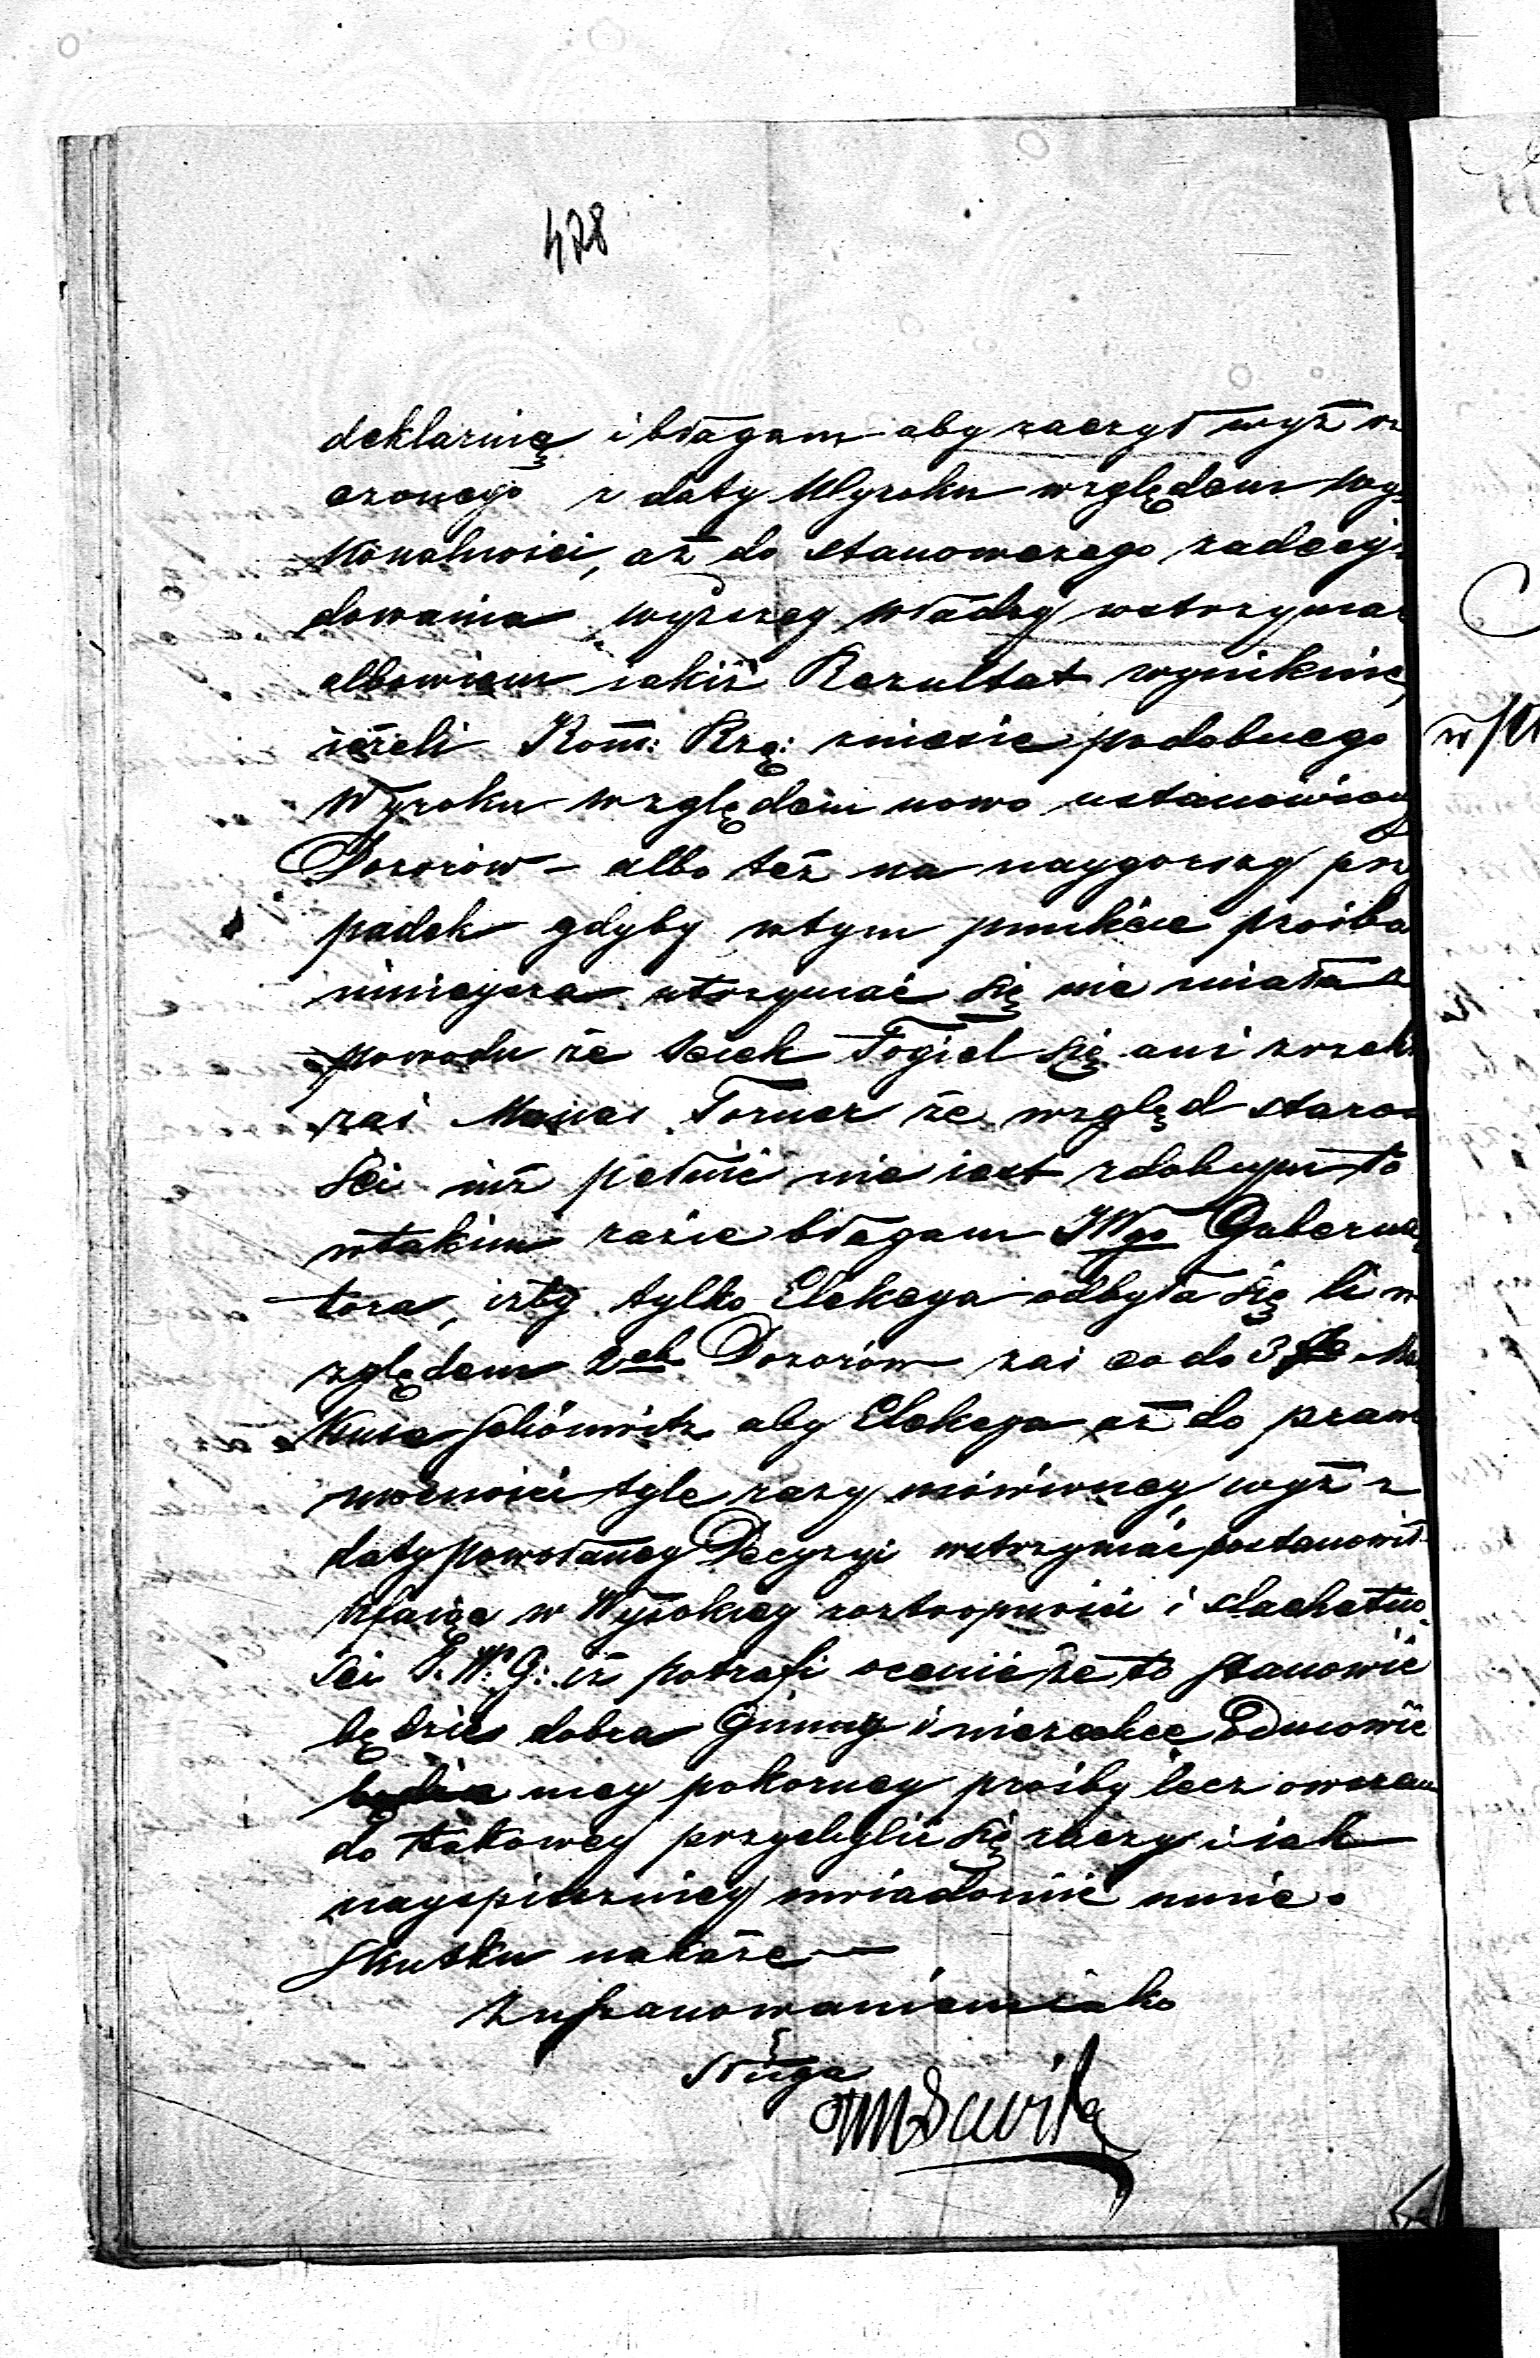 428
deklaruię i błagam aby raczył wyż w
czonego z daty Wyroku względem wy-
konalności, aż do stanowczego zadecy-
dowania wyższey władzy wstrzymać
albowiem iakiż Rezultat wyniknie,
ieżeli Kom: Rzą: zniesie podobnego
Wyroku względem nowo ustanowiony
Dozorów – albo też na naygorszy przy
padek gdyby wtym punkcie prośba
ninieysza utrzymać się nie miała z
powodu że Icek Fogiel się ani zrzekł
zaś Manes Torner że wzgląd staro-
ści iuż pełnić nie iest zdolnym to
wtakim razie błagam JWgo Guberna
tora, iżby tylko Elekcya odbyła się li w
zględem 2ch Dozorów zaś co do 3go Mar
kusa Schönwitz aby Elekcya aż do praw
mocności tyle razy mówioney wyż z
daty powołaney Decyzyi wstrzymać postanowił
Ufaiąc w Wysokiey roztropności i slachetno-
ści J. W. G: iż potrafi ocenić że to stanowić
będzie dobra Gminy i niezechce Odmówić
mey pokorney prośby lecz owszem
do takowey przychylić się raczy i iak
nayspieszniey uwiadomić mnie o
skutku nakaże
Zuszanowaniem iako
Sługa